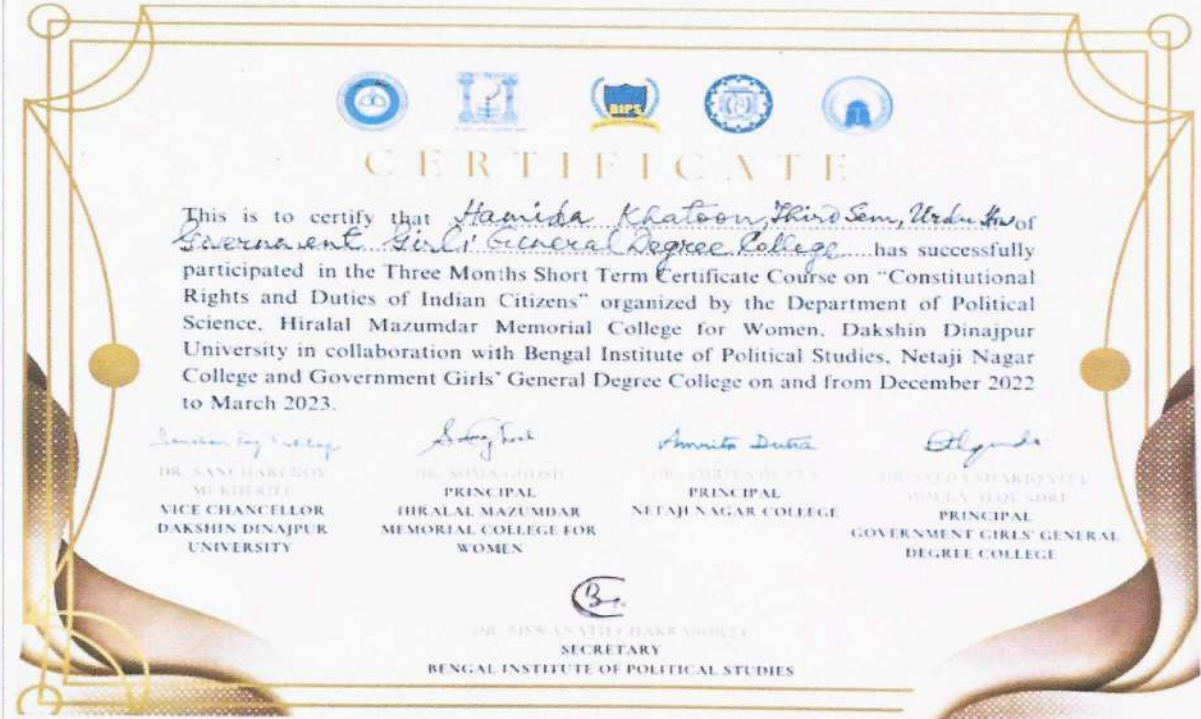 BIPS
CERTIFICATE
This is to certify that Hamida Khatoon, Third Sem, Urdu Hons of
Government Girls' General Degree College has successfully
participated in the Three Months Short Term Certificate Course on "Constitutional
Rights and Duties of Indian Citizens" organized by the Department of Political
Science, Hiralal Mazumdar Memorial College for Women, Dakshin Dinajpur
University in collaboration with Bengal Institute of Political Studies, Netaji Nagar
College and Government Girls' General Degree College on and from December 2022
to March 2023.
Amrita Dutta
DR. SANCHARI ROY
MUKHERJEE
VICE CHANCELLOR
DAKSHIN DINAJPUR
UNIVERSITY
DR. SOMA GHOSH
PRINCIPAL
HIRALAL MAZUMDAR
MEMORIAL COLLEGE FOR
WOMEN
DR. AMRITA DUTTA
PRINCIPAL
NETAJI NAGAR COLLEGE
DR. SYEDA
PRINCIPAL
GOVERNMENT GIRLS' GENERAL
DEGREE COLLEGE
DR. BISWANATH CHAKRABORTY
SECRETARY
BENGAL INSTITUTE OF POLITICAL STUDIES